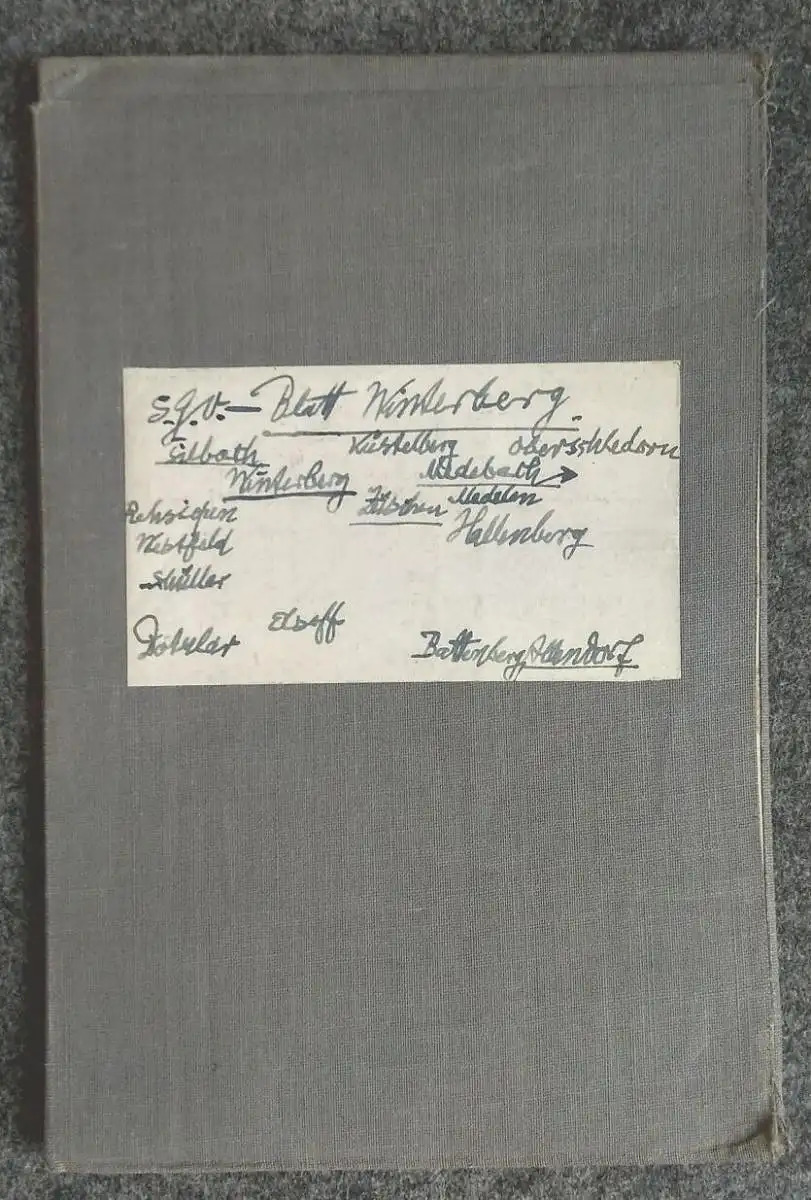 S.G.V. – Blatt Winterberg.
Silbach Küstelberg Oberschledorn
Winterberg Medebach →
Züschen Medelon
Westfeld Hallenberg
Elsoff
Battenberg, Allendorf